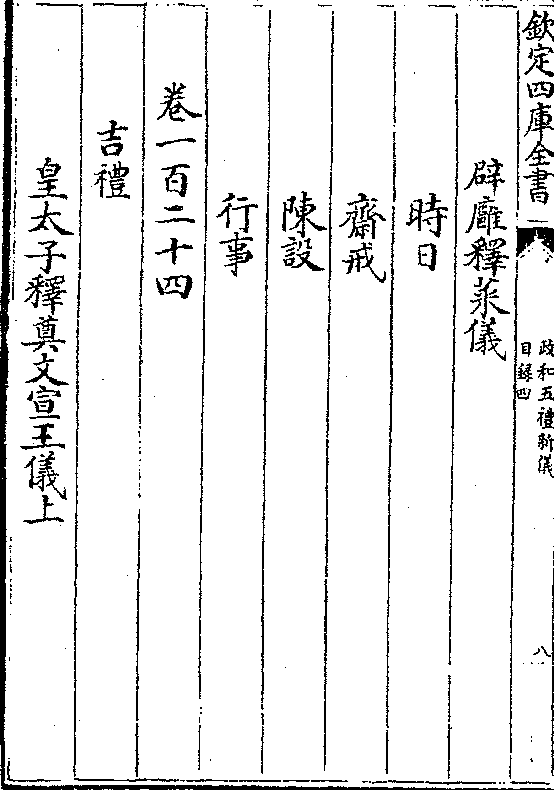 欽定四庫全書
政和五禮新儀
目録四
八
辟廱釋菜儀
時日
齋戒
陳設
行事
卷一百二十四
吉禮
皇太子釋奠文宣王儀上